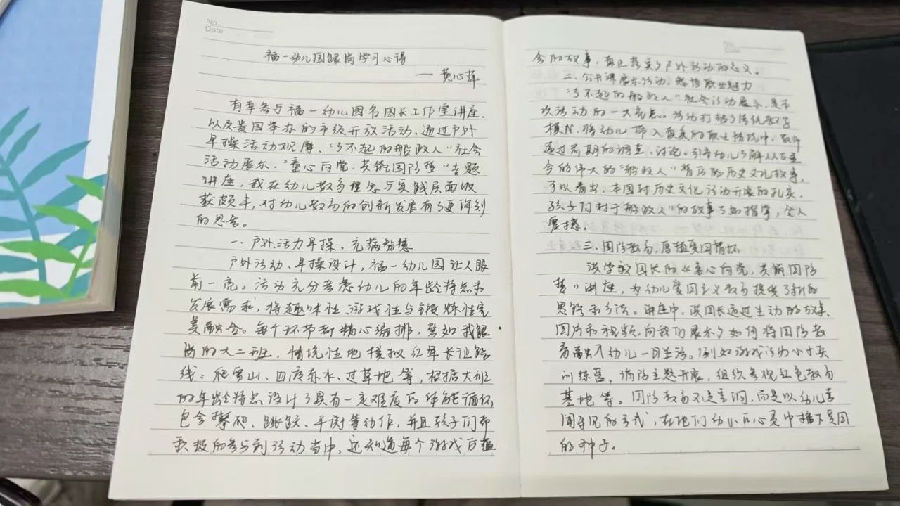 No.
Date
福一幼儿园跟岗学习心得
——黄心萍
有幸参与福一幼儿园名园长工作室讲座
以及贵园举办的市级开放活动，通过户外
早操活动观摩、"了不起的船政人"社会
活动展示、"童心向党，共筑国防梦"专题
讲座，我在幼儿教育理念与实践层面收
获颇丰，对幼儿教育的创新发展有了更深刻
的思考。
一、户外活力早操，充满智慧
户外活动、早操设计，福一幼儿园让人眼
前一亮，活动充分考虑幼儿的年龄特点与
发展需求，将趣味性、游戏性与锻炼性完
美融合。每个环节都精心编排，要如我跟
岗的大二班，情境性地模拟红军长征路
线：爬雪山、四渡赤水、过草地等，根据大班
的年龄特点，设计了具有一定难度的体能循环
包含攀爬、跳跃、平衡等动作，并且孩子们都
积极的参与到活动当中，还知道每个游戏的蕴
含的故事，真正落实了户外活动的意义。
二、公开课展示活动，感悟职业魅力
"了不起的船政人"社会活动展示，是本
次活动的一大亮点。活动打破了传统教学
模式，将幼儿带入真实的职业情境中，教师
通过前期的调查、讨论，引导幼儿了解从古至
今的伟大的"船政人"背后的历史文化故事，
可以看出，本园对历史文化活动开展的扎实，
孩子们对于船政人"的故事了如指掌，令人
震撼。
三、国防教育，厚植爱国情怀
该学校园长的《童心向党，共筑国防
梦》讲座，为幼儿爱国主义教育提供了新的
思路和方法。讲座中，该园长通过生动的故事、
图片和视频，向我们展示了如何将国防教
育融入幼儿一日生活。例如游戏活动小小兵
训练营，国防主题开展，组织参观红色教育
基地等。国防教育不是空洞，而是以幼儿喜
闻乐见的方式，在他们幼小的心灵中播下爱国
的种子。